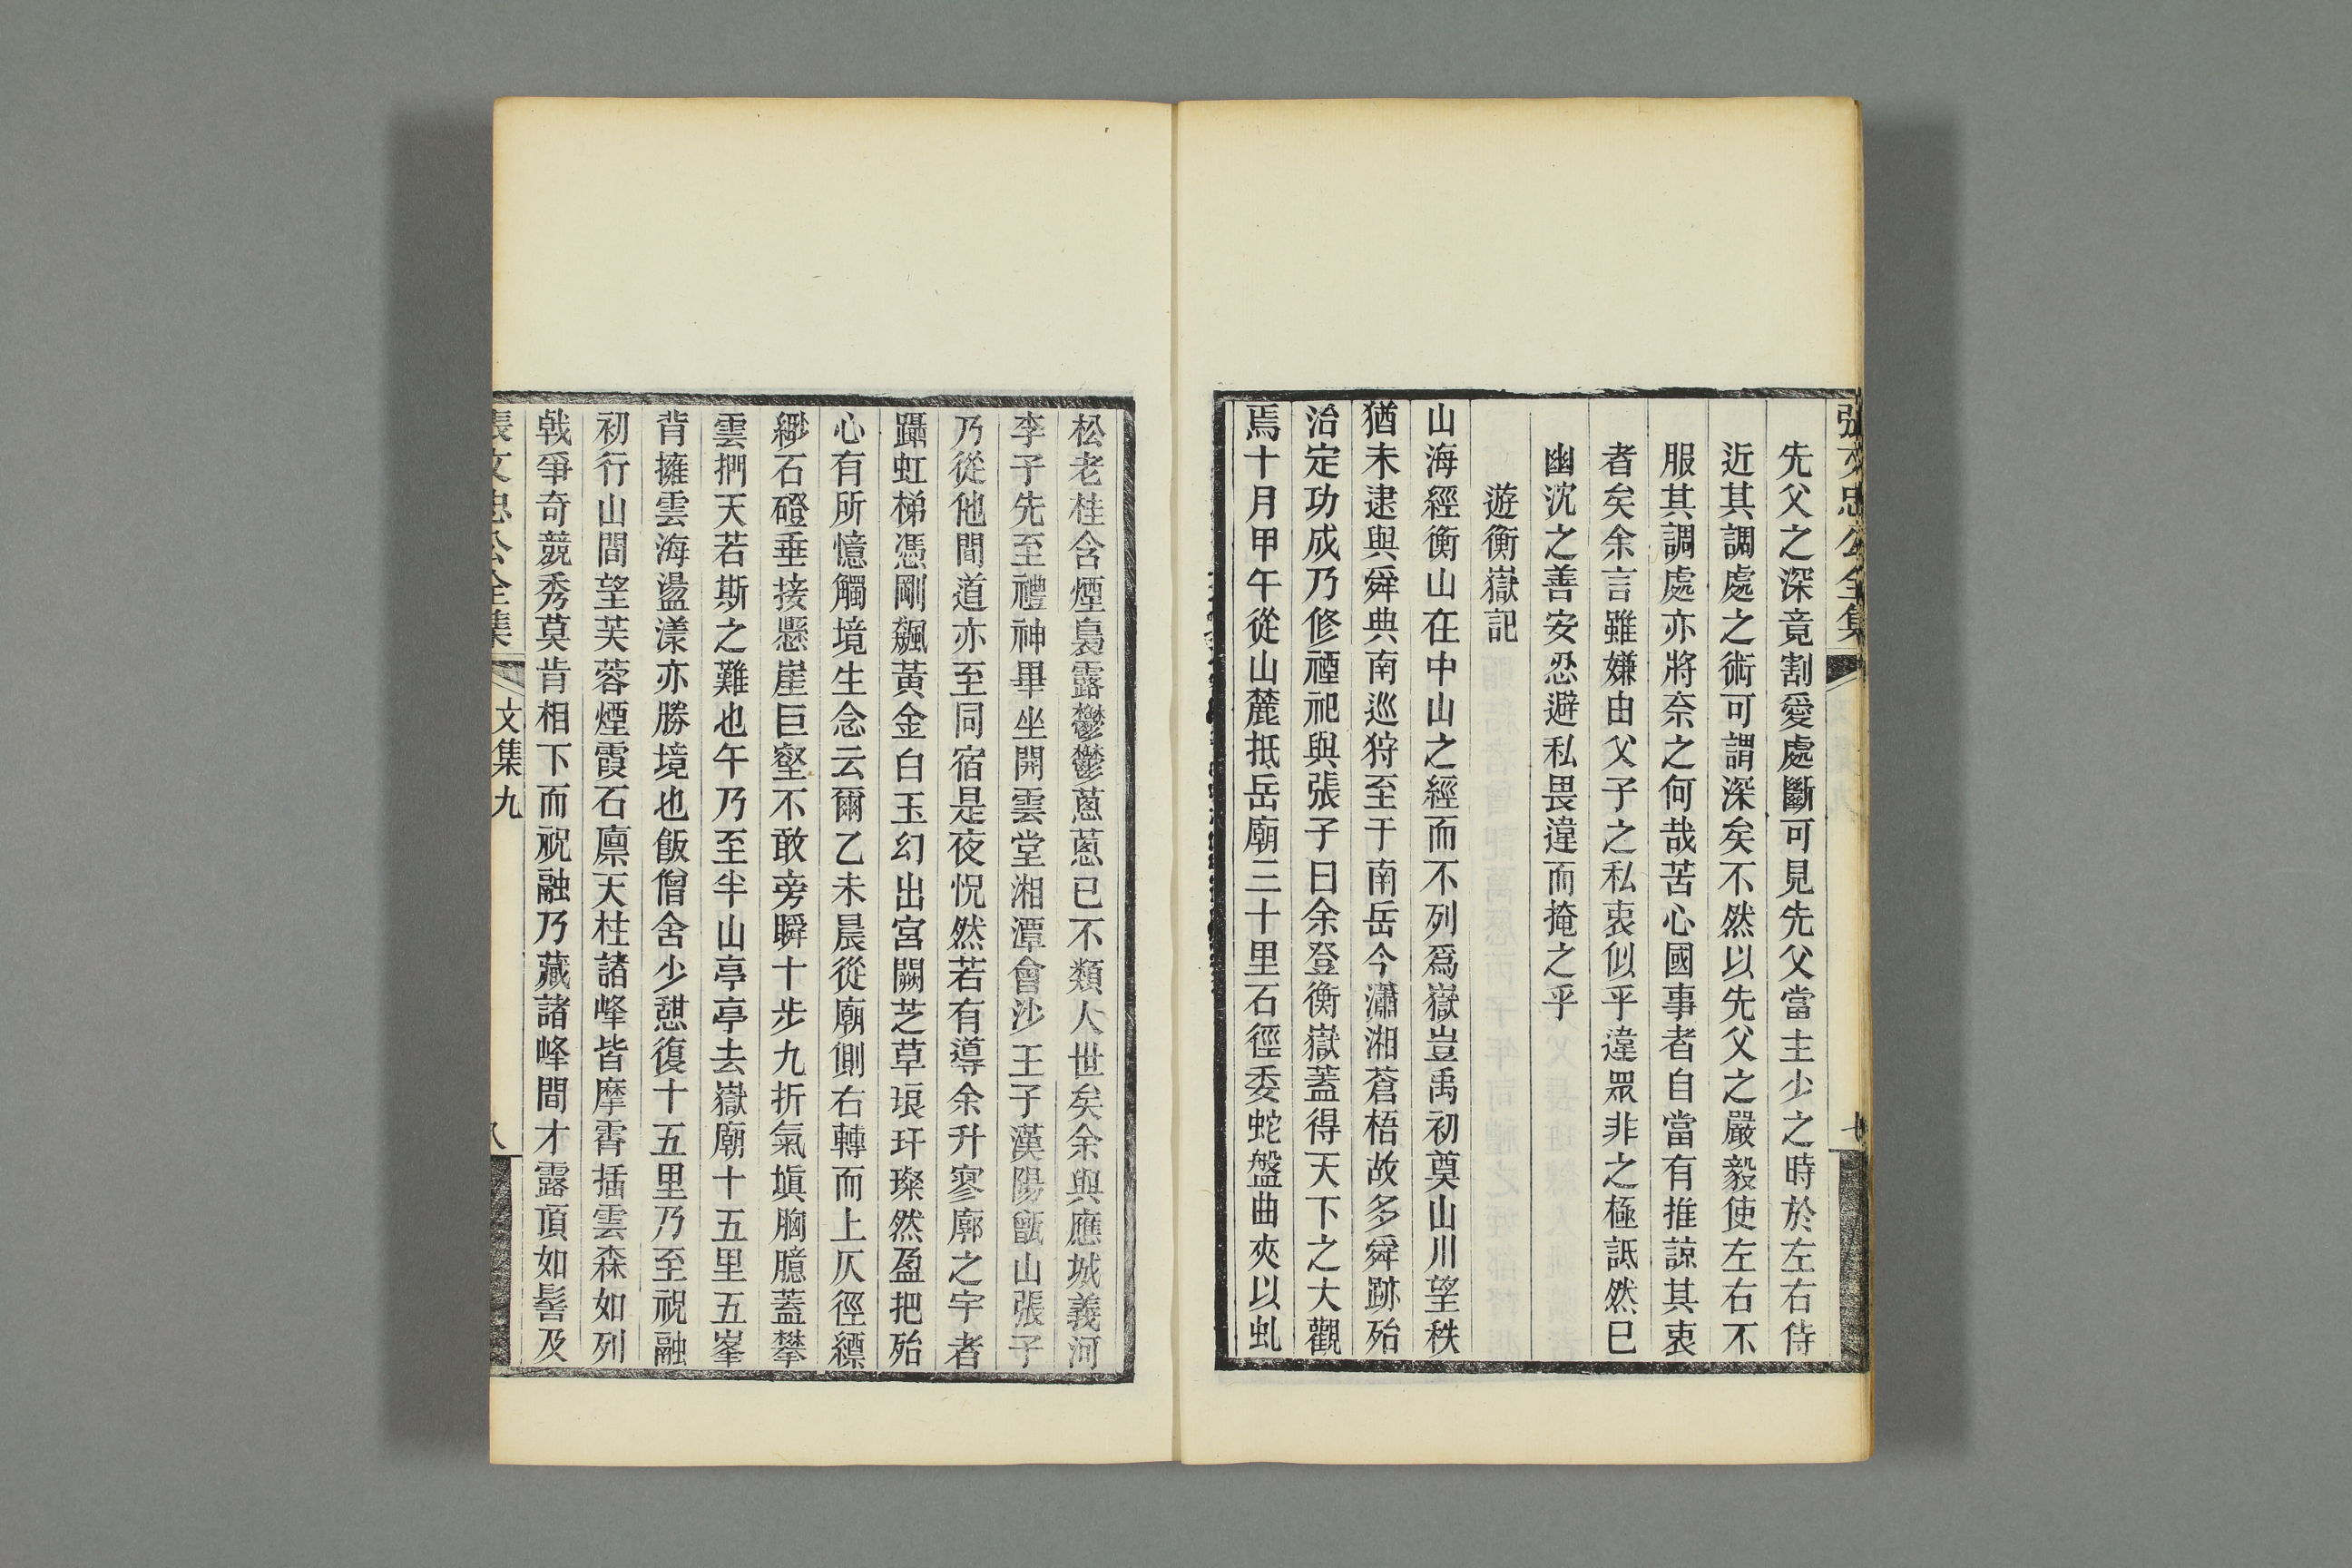 張文忠公全集 七
先父之深竟割愛處斷可見先父當主少之時於左右侍
近其調處之術可謂深矣不然以先父之嚴毅使左右不
服其調處亦將奈之何哉苦心國事者自當有推諒其衷
者矣余言雖嫌由父子之私衷似乎違眾非之極詆然巳
幽沈之善安忍避私畏違而掩之乎
遊衡嶽記
山海經衡山在中山之經而不列爲嶽豈禹初奠山川望秩
猶未逮與舜典南巡狩至于南岳今瀟湘蒼梧故多舜跡殆
治定功成乃修禋祀與張子曰余登衡嶽蓋得天下之大觀
焉十月甲午從山麓抵岳廟三十里石徑委蛇盤曲夾以虬
松老桂含煙裊露鬱鬱蔥蔥已不類人世矣余與應城義河
李子先至禮神畢坐開雲堂湘潭會沙王子漢陽甑山張子
乃從他間道亦至同宿是夜怳然若有導余升寥廓之宇者
躡虹梯憑剛飆黃金白玉幻出宮闕芝草琅玕璨然盈把殆
心有所憶觸境生念云爾乙未晨從廟側右轉而上仄徑縹
緲石磴垂接懸崖巨壑不敢旁瞬十步九折氣塡胸臆蓋攀
雲捫天若斯之難也午乃至半山亭亭去嶽廟十五里五峯
背擁雲海盪漾亦勝境也飯僧舍少憇復十五里乃至祝融
初行山間望芙蓉煙霞石廩天柱諸峰皆摩霄插雲森如列
戟爭奇競秀莫肯相下而祝融乃藏諸峰間才露頂如髻及
張文忠公全集 文集九 八